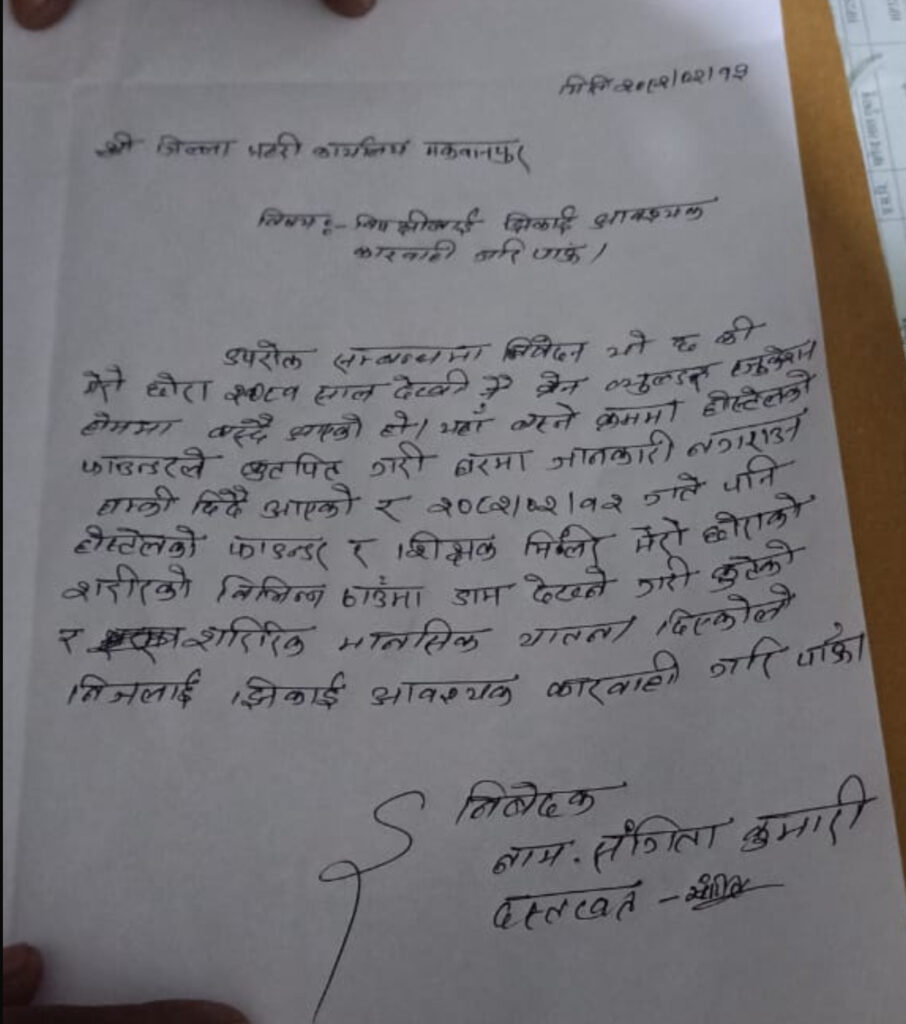 मिति २०८२/०२/१३
श्री जिल्ला प्रहरी कार्यालय मकवानपुर
विषय :- विपक्षीलाई झिकाई आवश्यक
कारवाही गरि पाऊ।
उपरोक्त सम्बन्धमा निवेदन यो छ की
मेरो छोरा २०८१ साल देखी नै ब्रेन एजुकेशन
होममा बस्दै आएको हो। यहाँ बस्ने क्रममा होस्टेलको
फाउन्डरले कुटपिट गरी घरमा जानकारी नगराउन
धम्की दिदै आएको र २०८२/०२/१२ गते पनि
होस्टेलको फाउन्डर र शिक्षक मिलि मेरो छोराको
शरीरको विभिन्न ठाउँमा डाम देखिने गरी कुटेको
र शारिरिक मानसिक यातना दिएकोले
निजलाई झिकाई आवश्यक कारवाही गरि पाऊँ।
निवेदक
नाम. संगिता कुमारी
दस्तखत -